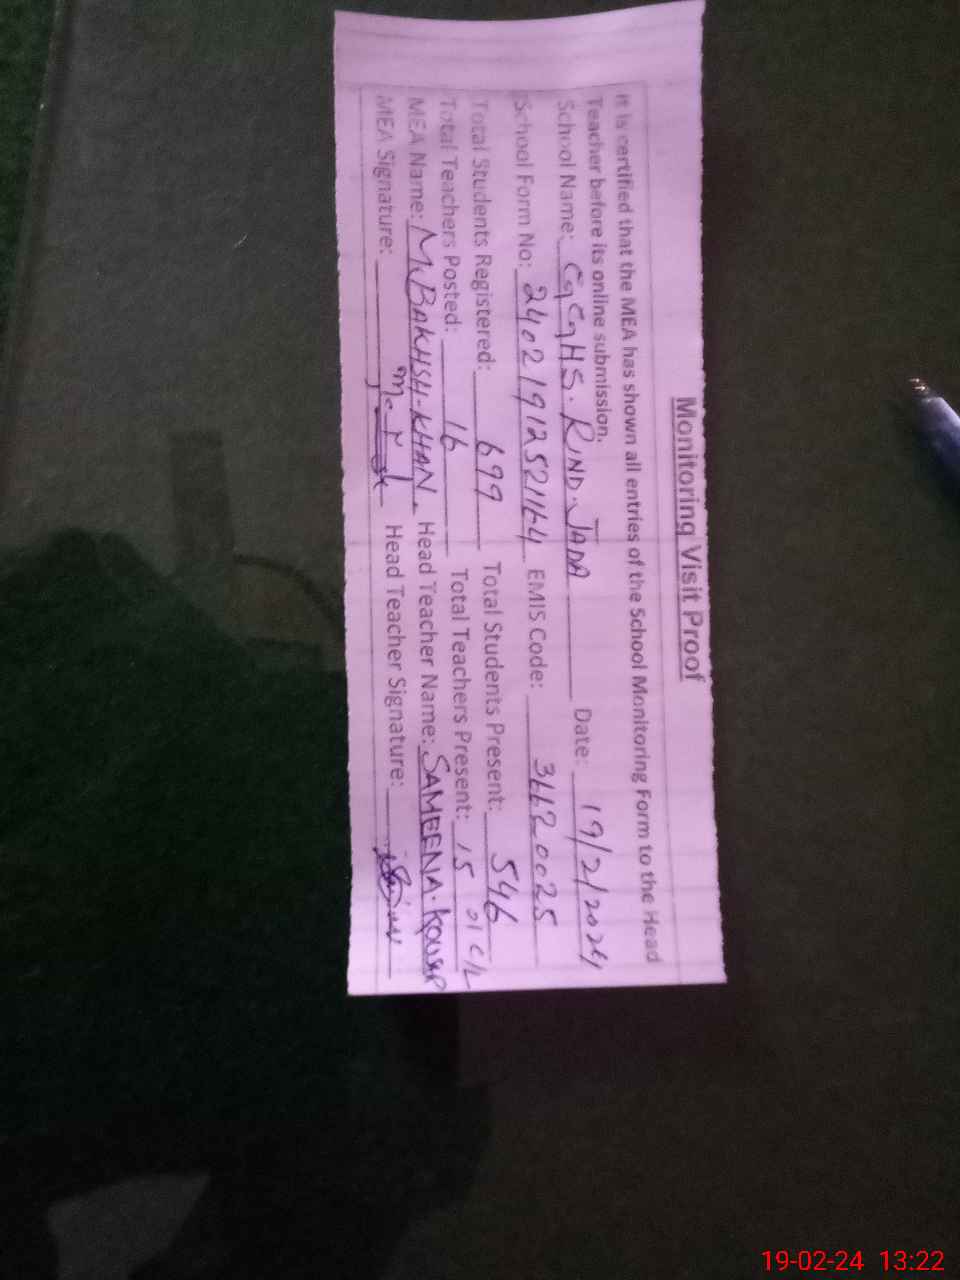 Monitoring Visit Proof
It is certified that the MEA has shown all entries of the School Monitoring Form to the Head
Teacher before its online submission.
School Name: GGHS. RIND. JADA Date: 19/2/2024
School Form No: EMIS Code:
Total Students Registered: 699 Total Students Present: 546
Total Teachers Posted: 16 Total Teachers Present: 15 01 C/L
MEA Name: M.BAKHSH.KHAN. Head Teacher Name: SAMEENA. KOUSAR
MEA Signature: Head Teacher Signature:
19-02-24 13:22